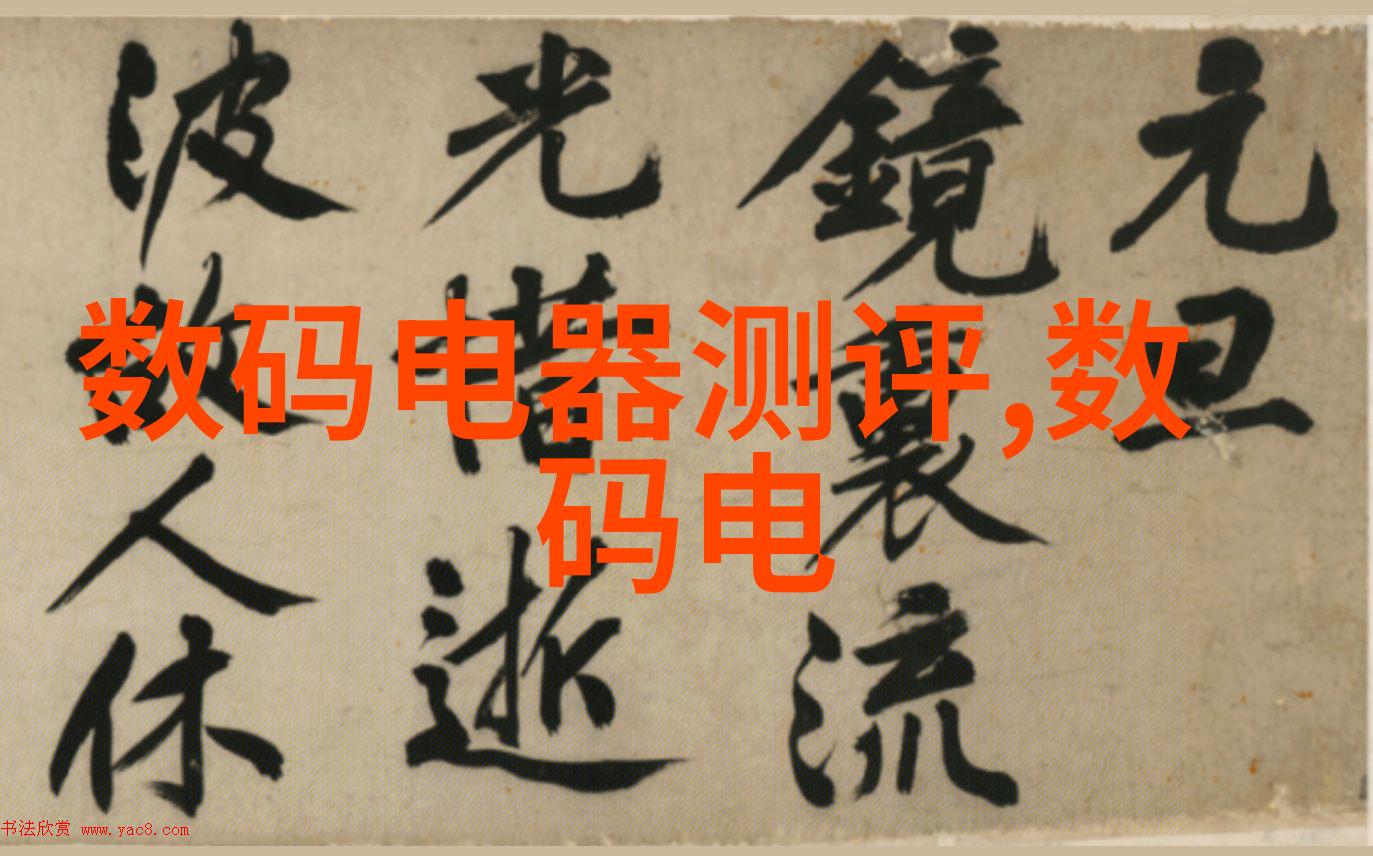 元旦
鏡裏流
光惜逝
波故人休
数码电器测评,数
码电
书法欣赏 www.yac8.com